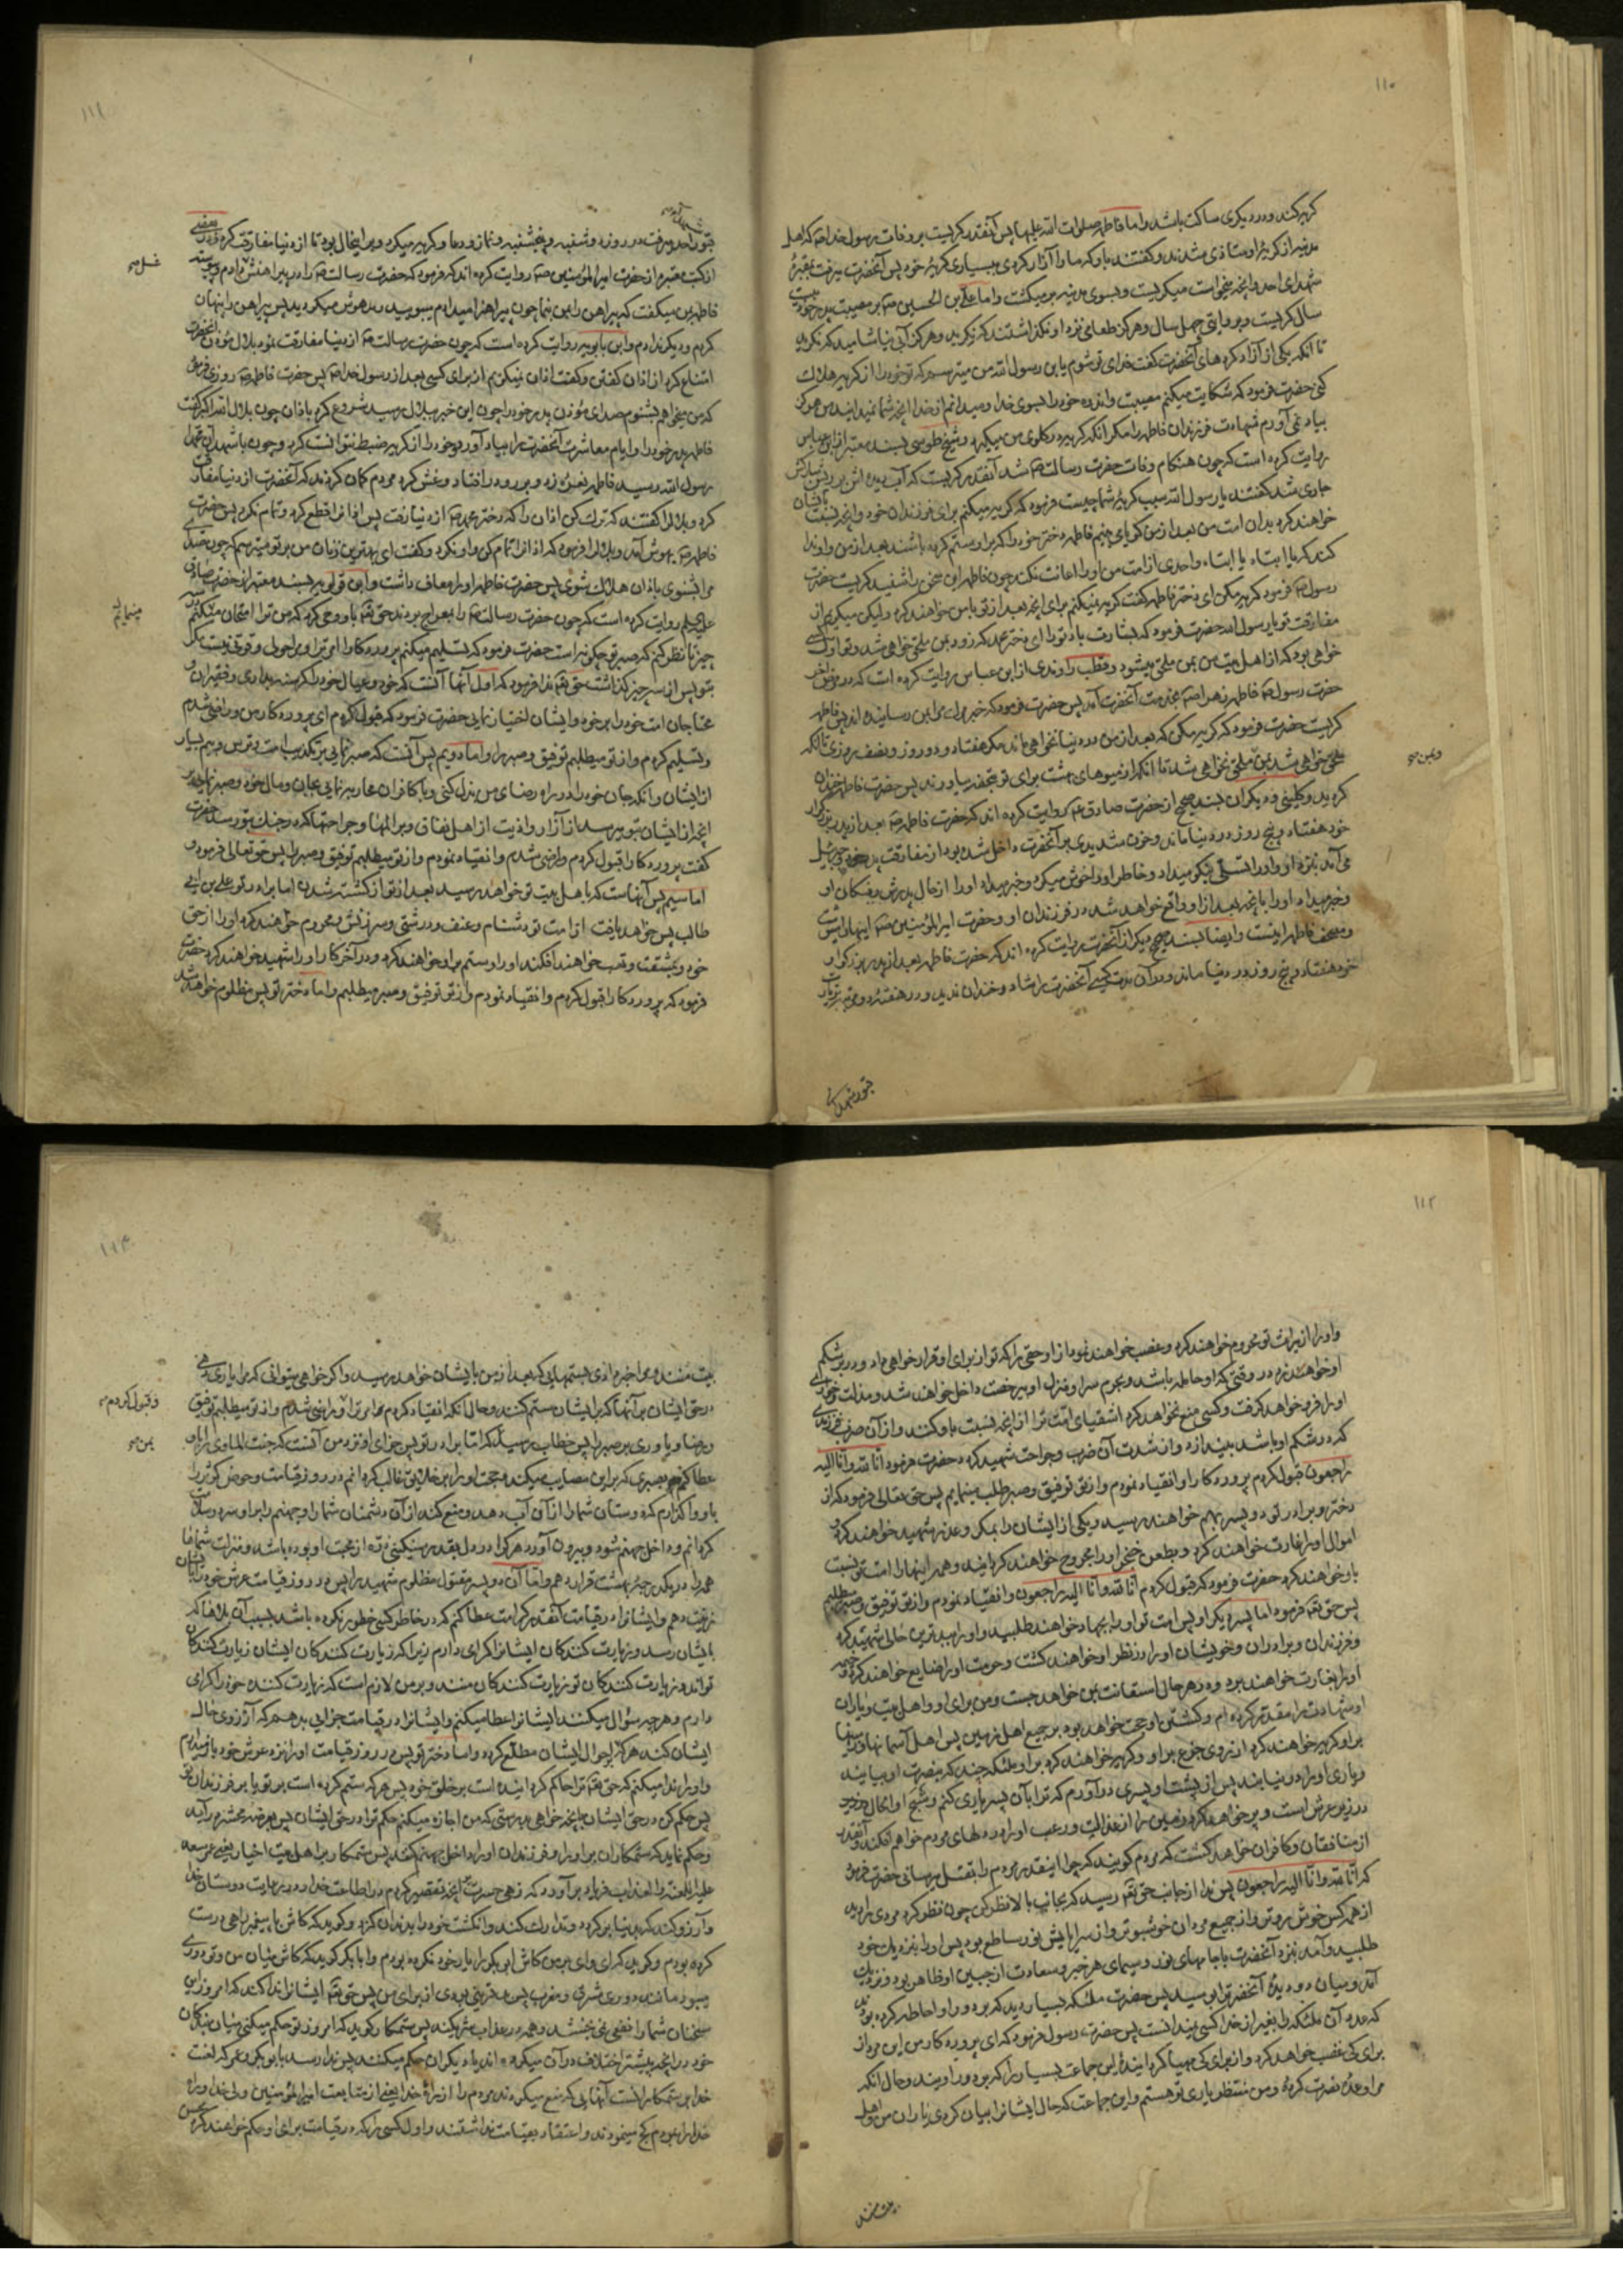 ۱۱۰
کریه کند ودر دیکری ساکت باشد واما فاطمه صلوات الله علیها پس آنقدر کریست بر وفات رسول خدا صم که اهل
مدینه از کریهٔ او متاذی شدند وکفتند باو که ما را آزار کردی ببسیاری کریهٔ خود پس آنحضرت میرفت بمقبرهٔ
شهدای احد وانچه میخواست میکریست وبسوی مدینه بر میکشت واما علی بن الحسین صم بر مصیبت پدر خود بیست
سال کریست وبروایتی چهل سال وهرکز طعامی نزد او نکذاشتند که نکرید وهرکز آبی نیاشامید که نکرید
تا آنکه یکی از آزاد کرده های آنحضرت کفت فدای تو شوم یابن رسول الله من میترسم که تو خود را از کریه هلاک
کنی حضرت فرمود که شکایت میکنم مصیبت واندوه خود را بسوی خدا ومیدانم از خدا انچه شما نمیدانید من هرکز
بیاد نمی آورم شهادت فرزندان فاطمه را مکر آنکه کریه در کلوی من میکیرد وشیخ طوسی بسند معتبر از ابن عباس
روایت کرده است که چون هنکام وفات حضرت رسالت صم شد آنقدر کریست که آب دیده اش بر ریش مبارکش
جاری شد کفتند یا رسول الله سبب کریهٔ شما چیست فرمود که کریه میکنم برای فرزندان خود وانچه نسبت بایشان
خواهند کرد بدان امت من بعد از من کویا می بینم فاطمه دختر خود را که بر او ستم کرده باشند بعد از من واو ندا
کند که یا ابتاه یا ابتاه واحدی از امت من او را اعانت نکند چون فاطمه این سخن را شنید کریست حضرت
رسول صم فرمود کریه مکن ای دختر فاطمه کفت کریه نمیکنم برای انچه بعد از تو با من خواهند کرد ولیکن میکریم از
مفارقت تو یا رسول الله حضرت فرمود که بشارت باد تو را ای دختر محمد که زود بمن ملحق خواهی شد وتو اول کسی
خواهی بود که از اهل بیت من بمن ملحق میشود وقطب راوندی از ابن عباس روایت کرده است که در مرض آخر
حضرت رسول صم فاطمه زهرا صم بخدمت آنحضرت آمد پس حضرت فرمود که خبر مرا برای من رسانیده اند پس فاطمه
کریست حضرت فرمود که کریه مکن که بعد از من در دنیا نخواهی ماند مکر هفتاد ودو روز ونصف روزی تا آنکه
ملحق خواهی شد بمن ملحق نخواهی شد تا آنکه از میوهای بهشت برای تو بتحفه بیاورند پس حضرت فاطمه خندان
ویمن صح
کردید وکلینی ودیکران بسند صحیح از حضرت صادق ع م روایت کرده اند که حضرت فاطمه صم بعد از پدر بزرکوار
خود هفتاد وپنج روز در دنیا ماند وحزن شدیدی بر آنحضرت داخل شده بود از مفارقت پدر خود وجبرئیل
می آمد بنزد او واو را تسلی نیکو میداد وخاطر او را خوش میکرد وخبر میداد او را از حال پدرش ومکان او
وخبر میداد او را بانچه بعد از او واقع خواهد شد در فرزندان او وحضرت امیر المؤمنین صم اینها را مینوشت
ومصحف فاطمه اینست وایضا بسند صحیح دیکر از آنحضرت روایت کرده اند که حضرت فاطمه بعد از پدر بزرکوار
خود هفتاد وپنج روز در دنیا ماند ودر آن مدت کسی آنحضرت را شاد وخندان ندید ودر هفتهٔ دو مرتبه بزیارت
قبور شهدای
۱۱۱
قبور احد میرفت در روز دوشنبه وپنجشنبه ونماز ودعا وکریه میکرد وبر اینحال بود تا از دنیا مفارقت کرد ودر بعضی
از کتب معتبره از حضرت امیر المؤمنین صم روایت کرده اند که فرمود که حضرت رسالت صم را در پیراهنش غسل دادم وپیوسته
غسل صح
فاطمه بمن میکفت که پیراهن را بمن بنما چون پیراهنرا میدادم میبویید ومدهوش میکردید پس پیراهن را پنهان
کردم ودیکر ندادم وابن بابویه روایت کرده است که چون حضرت رسالت صم از دنیا مفارقت نمود بلال مؤذن آنحضرت
امتناع کرد از اذان کفتن وکفت اذان نمیکویم از برای کسی بعد از رسول خدا صم پس حضرت فاطمه صم روزی فرمود
که من میخواهم بشنوم صدای مؤذن پدر خود را چون این خبر ببلال رسید شروع کرد باذان چون بلال الله اکبر کفت
فاطمه پدر خود را وایام معاشرت آنحضرت را بیاد آورد وخود را از کریه ضبط نتوانست کرد وچون باشهد ان محمدا
رسول الله رسید فاطمه نعرهٔ زد وبر رو در افتاد وغش کرد مردم کمان کردند که آنحضرت از دنیا مفارقت
کرد وبلال را کفتند که ترک کن اذان را که دختر محمد صم از دنیا رفت پس اذانرا قطع کرد وتمام نکرد پس حضرت
فاطمه صم بهوش آمد وبلال را فرمود که اذانرا تمام کن واو نکرد وکفت ای بهترین زنان من بر تو میترسم که چون صدای
مرا بشنوی باذان هلاک شوی پس حضرت فاطمه او را معاف داشت وابن قولویه بسند معتبر از حضرت صادق
علیه السلام روایت کرده است که چون حضرت رسالت صم را بمعراج بردند حق تعم باو وحی کرد که من ترا امتحان میکنم بسه
مینمایم
چیز تا نظر کنم که صبر تو چکونه است حضرت فرمود که تسلیم میکنم پروردکارا امر ترا ومرا حولی وقوتی نیست مکر
بتو پس از سه چیز کذاشت حق تعم ندا فرمود که اول آنها آنست که خود وعیال خود را کرسنه بداری وفقیران و
محتاجان امت خود را بر خود وایشان اختیار نمایی حضرت فرمود که قبول کردم ای پروردکار من وراضی شدم
وتسلیم کردم واز تو میطلبم توفیق وصبر را واما دویم پس آنست که صبر نمایی بر تکذیب امت وترس وبیم بسیار
از ایشان وآنکه جان خود را در راه رضای من بذل کنی وبا کافران محاربه نمایی بجان ومال خود وصبر نمایی بر
انچه از ایشان بتو میرسد از آزار واذیت از اهل نفاق وبر المها وجراحتها که در جنک بتو رسد حضرت
کفت پروردکارا قبول کردم وراضی شدم وانقیاد نمودم واز تو میطلبم توفیق وصبر را پس حق تعالی فرمود و
اما سیم پس آنهاست که باهل بیت تو خواهد رسید بعد از تو از کشته شدن اما برادر تو علی بن ابی
طالب پس خواهد یافت از امت تو دشنام وعنف ودرشتی وسرزنش ومحروم خواهند کرد او را از حق
خود وبمشقت وتعب خواهند افکند او را وستم بر او خواهند کرد ودر آخر کار او را شهید خواهند کرد حضرت
فرمود که پروردکارا قبول کردم وانقیاد نمودم واز تو توفیق وصبر میطلبم واما دختر تو پس مظلوم خواهد شد
۱۱۲
واو را از میراث تو محروم خواهند کرد وغصب خواهند نمود از او حقی را که تو از برای او قرار خواهی داد ودر بر شکم
او خواهند زد در وقتی که او حامله باشد وبحرم سرا ومنزل او بیرخصت داخل خواهند شد ومذلت وخواری
او را فرو خواهد کرفت وکسی منع نخواهد کرد اشقیای امت ترا از انچه نسبت باو کنند واز آن ضرب فرزندی
که در شکم او باشد بیندازد واز شدت آن ضرب وجراحت شهید کردد حضرت فرمود انا لله وانا الیه
راجعون قبول کردم پروردکارا وانقیاد نمودم واز تو توفیق وصبر طلب مینمایم پس حق تعالی فرمود که از
دختر وبرادر تو دو پسر بهم خواهند رسید ویکی از ایشان را بمکر وغدر شهید خواهند کرد و
اموال او را غارت خواهند کرد وبطعن خنجر او را مجروح خواهند کردانید وهمهٔ اینها را امت تو نسبت
باو خواهند کرد حضرت فرمود که قبول کردم انا لله وانا الیه راجعون وانقیاد نمودم واز تو توفیق وصبر میطلبم
پس حق تعم فرمود اما پسر دیکر او پس امت تو او را بجهاد خواهند طلبید واو را ببدترین حالی شهید کرده
وفرزندان وبرادران وخویشان او را در نظر او خواهند کشت وحرمت او را ضایع خواهند کرد وخیمهٔ
او را بغارت خواهند برد ودر هر حال استعانت بمن خواهد جست ومن برای او واهل بیت ویاران
او شهادت را مقدر کرده ام وکشتن او حجت خواهد بود بر جمیع اهل زمین پس اهل آسمانها وزمینها
بر او کریه خواهند کرد از روی جزع بر او وکریه خواهند کرد بر او ملئکه چند که بنصرت او بیایند
ویاری او را در نیابند پس از پشت او پسری در آورم که ترا بآن پسر یاری کنم وشبح او الحال در نزد
در زیر عرش است وپر خواهد کرد زمین را از عدالت ورعب او را در دلهای مردم خواهم افکند وآنقدر
از منافقان وکافران خواهد کشت که مردم کویند که چرا اینقدر مردم را بقتل میرسانی حضرت فرمود
که انا لله وانا الیه راجعون پس ندا از جانب حق تعم رسید که بجانب بالا نظر کن چون نظر کرد مردی را دید
از همه کس خوش روتر واز جمیع مردان خوشبوتر واز سراپایش نور ساطع بود پس او را بنزدیک خود
طلبید وآمد بنزد آنحضرت با جامهای نور وسیمای هر خیر وسعادت از جبین او ظاهر بود ونزدیک
آمد ومیان دو دیدهٔ آنحضرترا بوسید پس حضرت ملئکه بسیار دید که بدور او احاطه کرده بودند
که عدد آن ملئکه را بغیر از خدا کسی نمیدانست پس حضرت رسول فرمود که ای پروردکار من این مرد از
برای کی غضب خواهد کرد واز برای کی مهیا کردانیدهٔ این جماعت بسیار را که بدور او میند وحال انکه
مرا وعدهٔ نصرت کردهٔ ومن منتظر یاری تو هستم واین جماعت که حال ایشانرا بیان کردی یاران من واهل
بیت منند
۱۱۳
بیت منند ومرا خبر دادی بستمهایی که بعد از من بایشان خواهد رسید واکر خواهی میتوانی که مرا یاری دهی
در حق ایشان بر آنها که بر ایشان ستم کنند وحال آنکه انقیاد کردم امر ترا وراضی شدم واز تو میطلبم توفیق
وقبول کردم صح
ورضا ویاوری بر صبر را پس خطاب رسید که اما برادر تو پس جزای او نزد من آنست که جنت الماوی را باو
یمن صح
عطا کنم بصبری که بر این مصایب میکند وحجت او را بر خلایق غالب کردانم در روز قیامت وحوض کوثر را
باو واکذارم که دوستان شما را از آن آب دهد ومنع کند از آن دشمنان شما را وجهنم را بر او سرد وسلامت
کردانم وداخل جهنم شود وبیرون آورد هر که را در دل بقدر سنکینی ذرهٔ از محبت او بوده باشد ومنزلت شماها
همه را در یک درجهٔ بهشت قرار دهم واما آن دو پسر مقتول مظلوم شهید را پس در روز قیامت عرش خود را بایشان
زینت دهم وایشانرا در قیامت آنقدر کرامت عطا کنم که در خاطر کسی خطور نکرده باشد بسبب آن بلاها که
بایشان رسد وزیارت کنندکان ایشانرا کرامی دارم زیرا که زیارت کنندکان ایشان زیارت کنندکان
تواند وزیارت کنندکان تو زیارت کنندکان منند وبر من لازم است که زیارت کننده خود را کرامی
دارم وهر چه سؤال میکنند ایشانرا عطا میکنم وایشانرا در قیامت جزایی بدهم که آرزوی حال
ایشان کند هر که بر احوال ایشان مطلع کردد واما دختر تو پس در روز قیامت او را نزد عرش خود باز میدارم
واو را ندا میکنم که حق تعم ترا حاکم کردانیده است بر خلق خود پس هر که ستم کرده است بر تو یا بر فرزندان تو
پس حکم کن در حق ایشان بانچه خواهی بدرستی که من اجازه میکنم حکم ترا در حق ایشان پس بعرصهٔ محشر در آید
وحکم نماید که ستمکاران بر او را وفرزندان او را داخل جهنم کنند پس ستمکار بر اهل بیت اخیار یعنی عمر سعد
علیه اللعنه والعذاب فریاد بر آورد که زهی حسرت بر انچه تقصیر کردم در اطاعت خدا ودر رعایت دوستان خدا
وآرزو کند که بدنیا بر کردد وتدارک کند وانکشت خود را بدندان کزد وکوید که کاش با پیغمبر راهی درست
کرده بودم وکوید که ای وای بر من کاش ابو بکر را یار خود نکرده بودم وبا ابا بکر کوید که کاش میان من وتو دوری
میبود مانند دوری مشرق ومغرب پس بد قرینی بودی از برای من پس حق تعم ایشانرا ندا کند که امروز این
سخنان شما را نفعی نمی بخشد وهمه در عذاب شریکند پس ستمکار کوید که امروز تو حکم میکنی میان بندکان
خود در انچه پیشتر اختلاف در آن میکرده اند یا دیکران حکم میکنند پس ندا رسد بابو بکر وعمر که لعنت
خدا بر ستمکارانست آنهایی که منع میکردند مردم را از راه خدا یعنی از متابعت امیر المؤمنین ولی خدا وراه
خدا را بمردم کج مینمودند واعتقاد بقیامت نداشتند واول کسی را که در قیامت برای او حکم خواهند کرد محسن